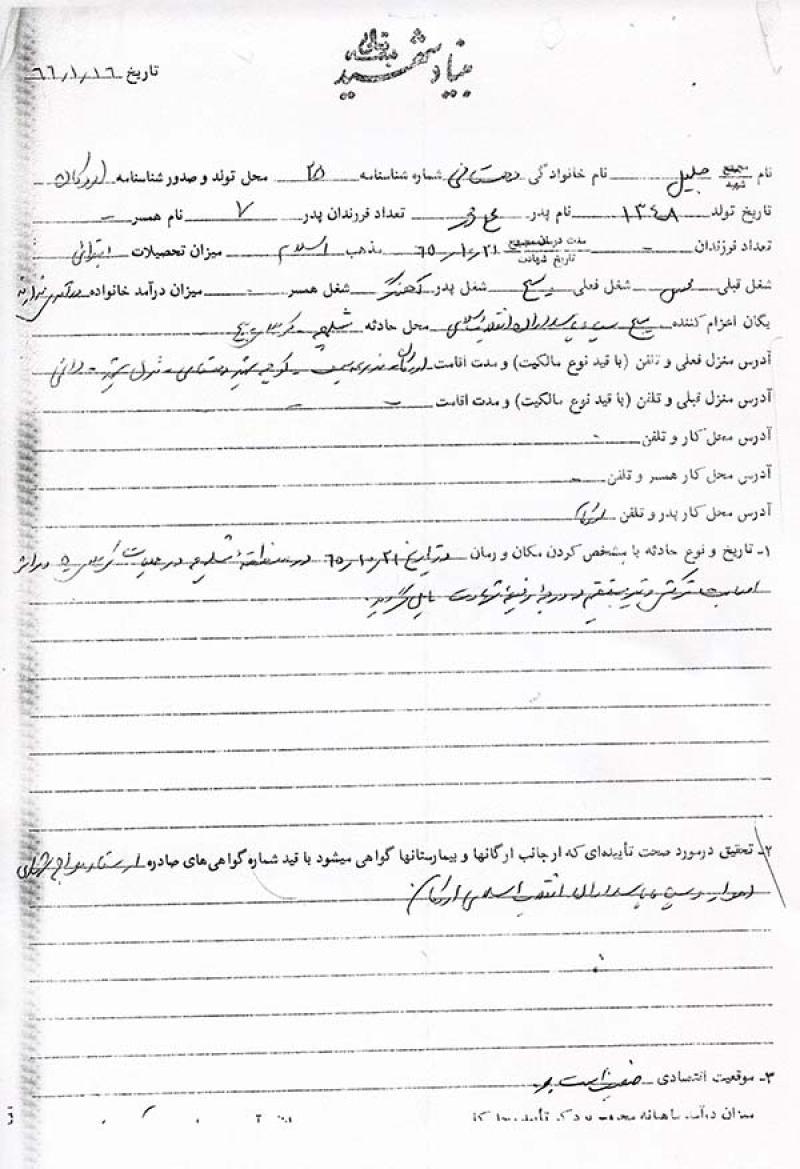 بسمه تعالی
بنیاد شهید
تاریخ ۶۶/۱/۱۶
نام مجروح شهید جلیل نام خانوادگی دهستانی شماره شناسنامه ۲۵ محل تولد و صدور شناسنامه اردکان
تاریخ تولد ۱۳۴۸ نام پدر تعداد فرزندان پدر ۷ نام همسر -
تعداد فرزندان - مدت درمان مجروح تاریخ شهادت ۶۵/۱۰/۲۱ مذهب اسلام میزان تحصیلات ابتدائی
شغل قبلی محصل شغل فعلی بسیج شغل پدر آهنگر شغل همسر - میزان درآمد خانواده درآمدی ندارند
یگان اعزام کننده بسیج سپاه پاسداران انقلاب اسلامی محل حادثه شلمچه کربلای پنج
آدرس منزل فعلی و تلفن (با قید نوع مالکیت) و مدت اقامت اردکان کوچه شهید دهستانی - منزل
آدرس منزل قبلی و تلفن (با قید نوع مالکیت) و مدت اقامت - -
آدرس محل کار و تلفن -
آدرس محل کار همسر و تلفن -
آدرس محل کار پدر و تلفن اردکان
۱- تاریخ و نوع حادثه با مشخص کردن مکان و زمان در تاریخ ۶۵/۱۰/۲۱ در منطقه شلمچه در عملیات کربلای ۵ در اثر
اصابت ترکش و تیر مستقیم به درجه رفیع شهادت نایل گردید.
۲- تحقیق درمورد صحت تأییده‌ای که از جانب ارگانها و بیمارستانها گواهی میشود با قید شماره گواهی‌های صادره از ستاد معراج شهدای
اهواز و سپاه پاسداران انقلاب اسلامی اردکان
۳- موقعیت اقتصادی ضعیف است
میزان درآمد ماهانه